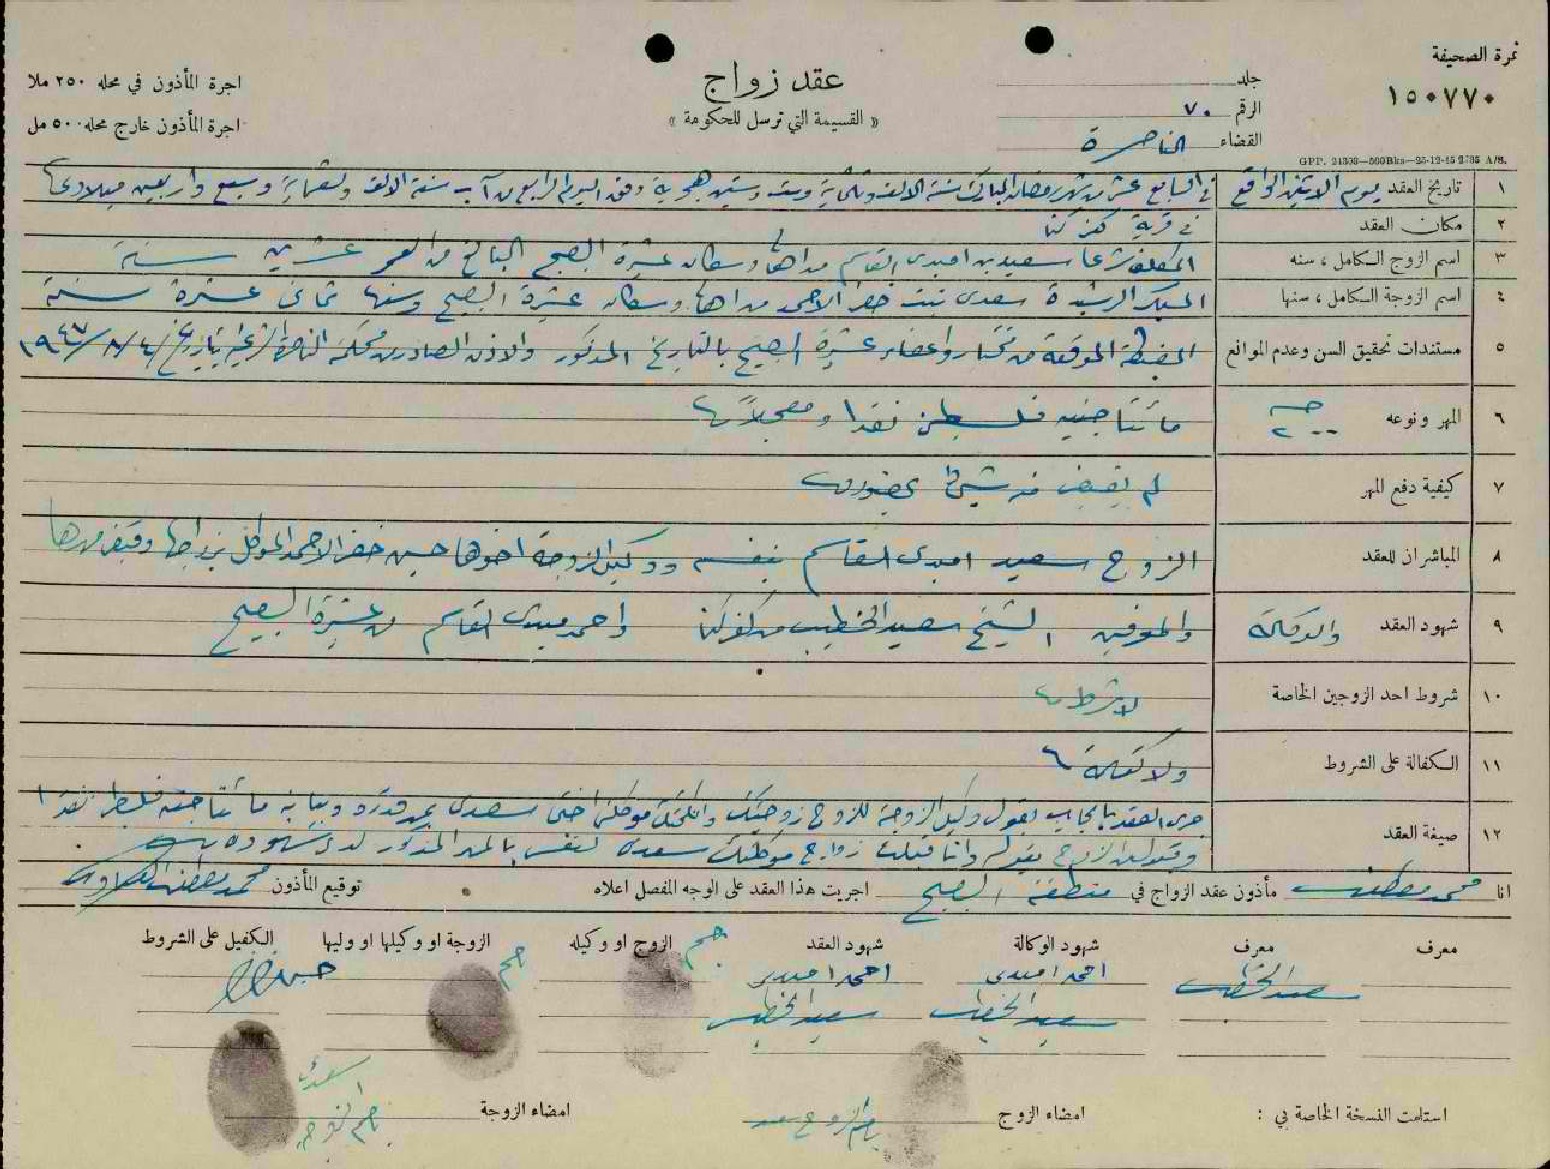 نمرة الصحيفة
١٥٠٧٧٠
جلد
الرقم ٧٠
القضاء الناصرة
عقد زواج
« القسيمة التي ترسل للحكومة »
اجرة المأذون في محله ٢٥٠ ملا
اجرة المأذون خارج محله ٥٠٠ مل
GPP. 24303—500Bks—25-12-45 2785 A/S.
١ تاريخ العقد يوم الاثنين الواقع في السابع عشر من شهر رمضان المبارك سنة الالف وثلثماية وست وستين هجرية وفق اليوم الرابع من آب سنة الالف وتسعماية وسبع واربعين ميلادية
٢ مكان العقد في قرية كفر كنا
٣ اسم الزوج الكامل ، سنه المكلف شرعا سعيد بن امبدى القاسم من اهالي وسكان عشيرة الصبيح البالغ من العمر عشرين سنة
٤ اسم الزوجة الكامل ، سنها البكر الرشيدة سعدى بنت خضر الاحمد من اهالي وسكان عشيرة الصبيح وسنها ثماني عشرة سنة
٥ مستندات تحقيق السن وعدم الموانع المضبطة الموقعة من مختار واعضاء عشيرة الصبيح بالتاريخ المذكور والاذن الصادر من محكمة الناصرة الشرعية بتاريخ ٤/٨/١٩٤٧
٦ المهر ونوعه ٢٠٠ مائتا جنيه فلسطيني نقدا ومعجلا
٧ كيفية دفع المهر لم يقبض منه شيئ بحضوري
٨ المباشران للعقد الزوج سعيد امبدى القاسم بنفسه ووكيل الزوجة اخوها حسين خضر الاحمد الموكل بزواجها وقبض مهرها
٩ شهود العقد والوكالة والمعرفين الشيخ سعيد الخطيب من كفر كنا واحمد امبدى القاسم من عشيرة الصبيح
١٠ شروط احد الزوجين الخاصة لا شروط
١١ الكفالة على الشروط ولا كفالة
١٢ صيغة العقد جرى العقد بايجاب بقول وكيل الزوجة للزوج زوجتك وانكحتك موكلتي اختي سعدى بمهر قدره وبيانه مائتا جنيه فلسطيني نقدا
وقبول من الزوج بقوله وانا قبلت زواج موكلتك سعدى لنفسي بالمهر المذكور لدى شهوده
انا محمد مصطفى مأذون عقد الزواج في منطقة الصبيح اجريت هذا العقد على الوجه المفصل اعلاه توقيع المأذون محمد مصطفى
معرف معرف شهود الوكالة شهود العقد الزوج او وكيله الزوجة او وكيلها او وليها الكفيل على الشروط
سعيد الخطيب احمد امبدى احمد امبدى
سعيد الخطيب سعيد الخطيب
استلمت النسخة الخاصة بي : امضاء الزوج امضاء الزوجة سعدى